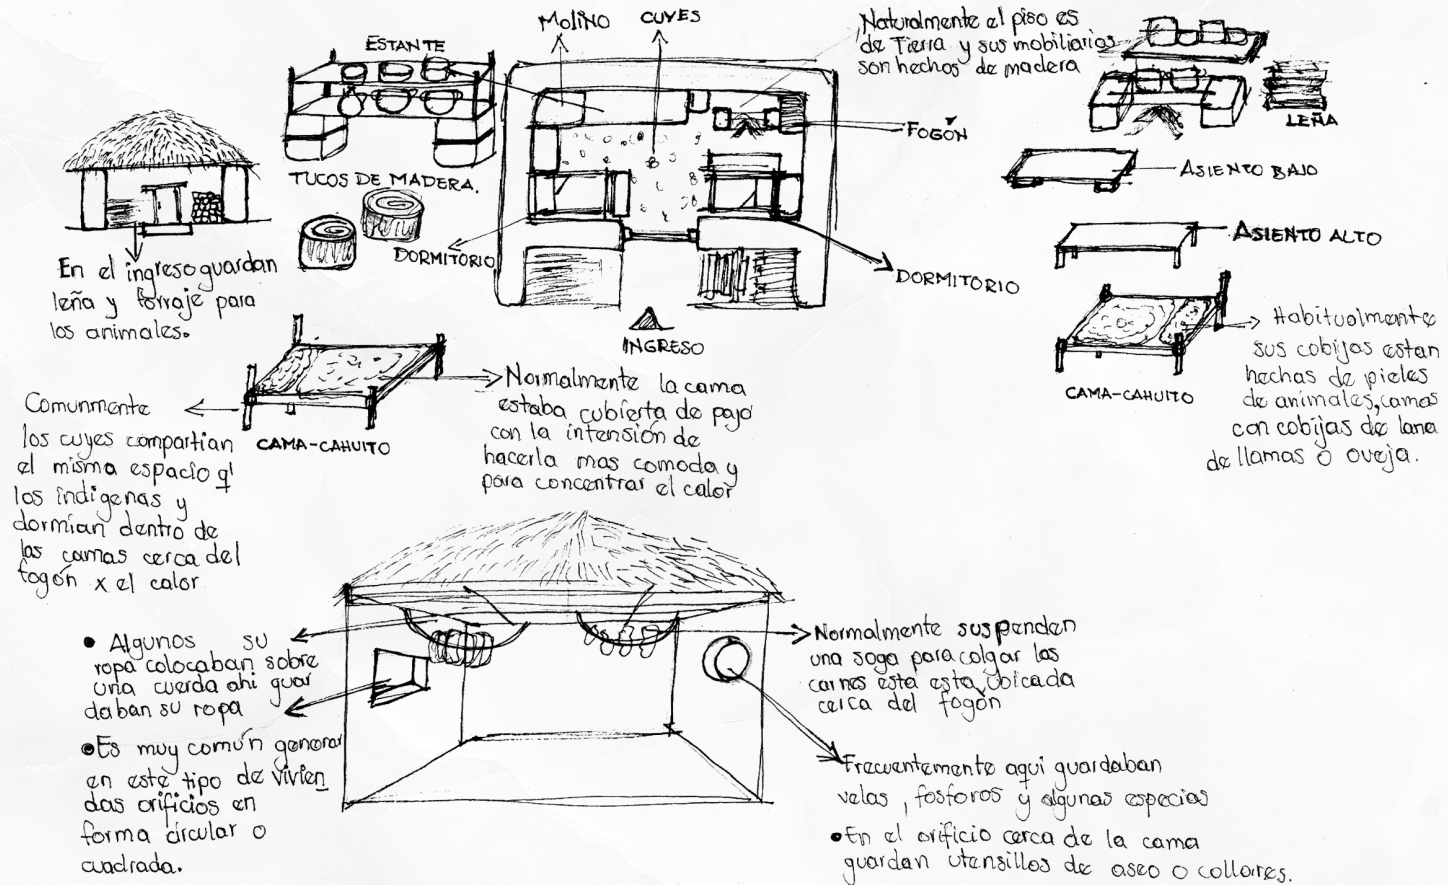 MOLINO
CUYES
ESTANTE
Naturalmente el piso es
de Tierra y sus mobiliarios
son hechos de madera
FOGÓN
LEÑA
TUCOS DE MADERA.
ASIENTO BAJO
DORMITORIO
DORMITORIO
ASIENTO ALTO
En el ingreso guardan
leña y forraje para
los animales.
INGRESO
CAMA-CAHUITO
Habitualmente
sus cobijas estan
hechas de pieles
de animales, camas
con cobijas de lana
de llamas o oveja.
Normalmente la cama
estaba cubierta de pajo
con la intensión de
hacerla mas comoda y
para concentrar el calor
CAMA-CAHUITO
Comunmente
los cuyes compartian
el misma espacio q'
los indigenas y
dormian dentro de
las camas cerca del
fogón x el calor
• Algunos su
ropa colocaban sobre
una cuerda ahi guar
daban su ropa
• Es muy común generar
en este tipo de vivien
das orificios en
forma circular o
cuadrada.
Normalmente suspenden
una soga para colgar las
carnes esta esta ubicada
cerca del fogón
Frecuentemente aqui guardaban
velas, fosforos y algunas especias
• En el orificio cerca de la cama
guardan utensillos de aseo o collares.